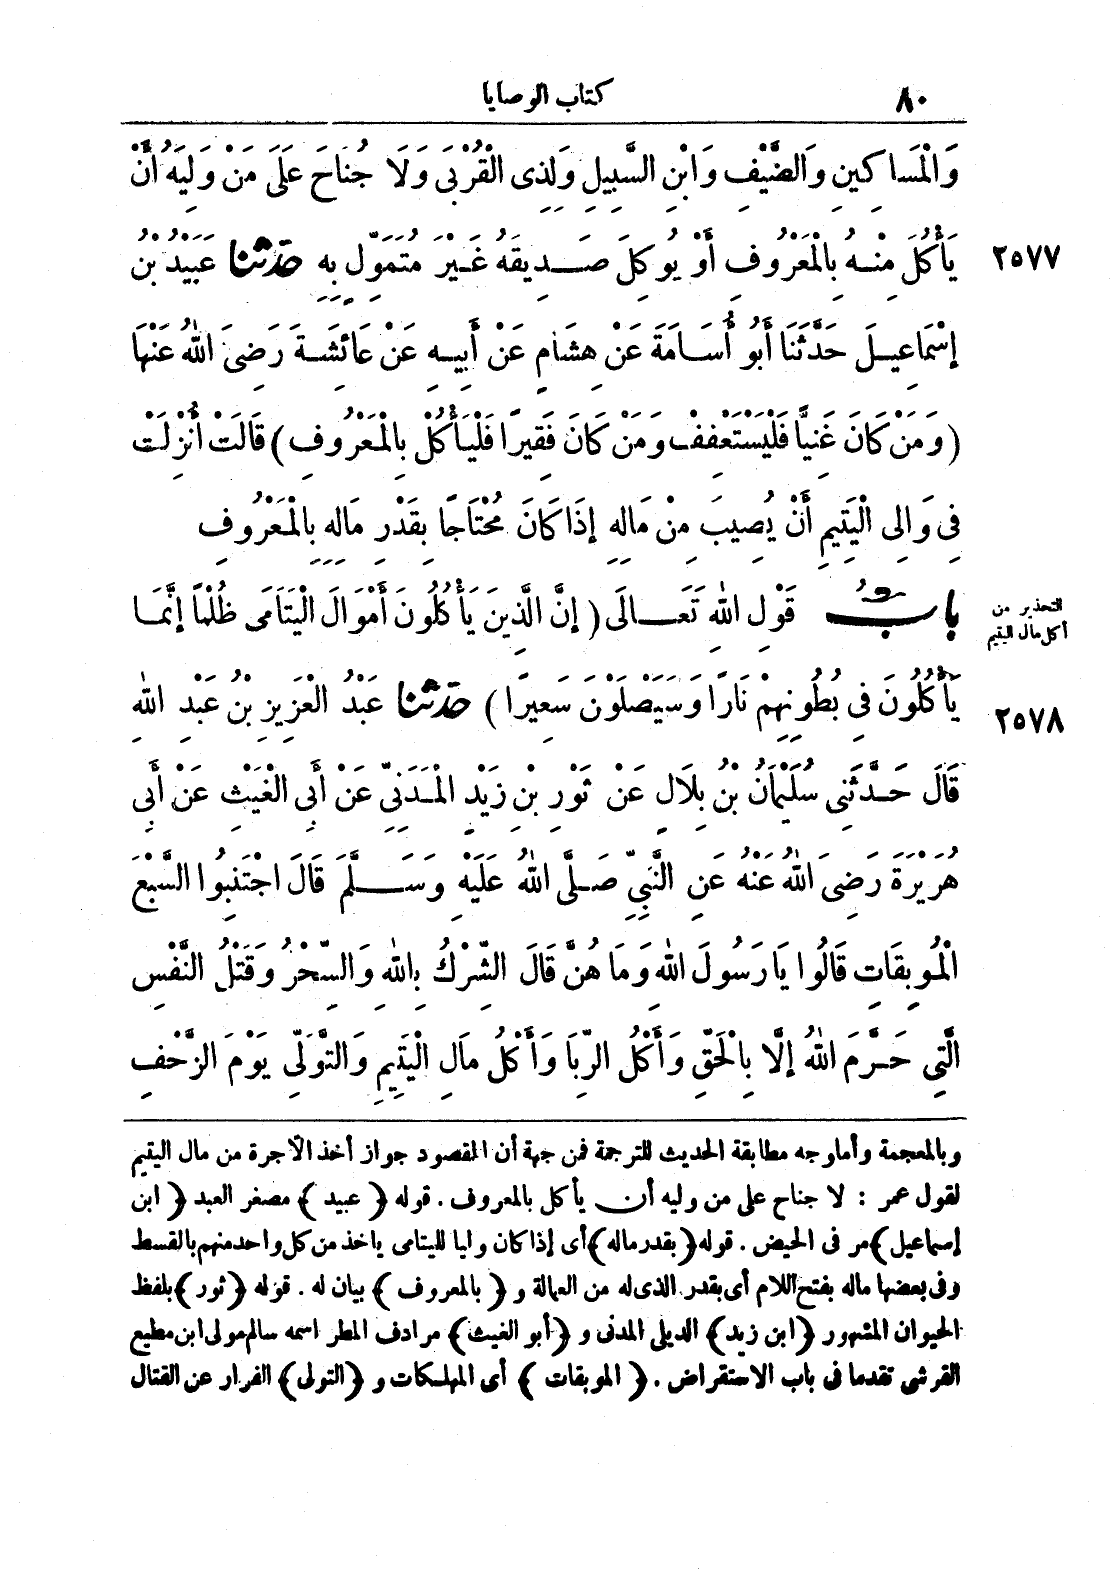 ٨٠ كتاب الوصايا
وَالْمَسَاكِينِ وَالضَّيْفِ وَابْنِ السَّبِيلِ وَلِذِى الْقُرْبَى وَلَا جُنَاحَ عَلَى مَنْ وَلِيَهُ أَنْ
٢٥٧٧ يَأْكُلَ مِنْهُ بِالْمَعْرُوفِ أَوْ يُوكِلَ صَدِيقَهُ غَيْرَ مُتَمَوِّلٍ بِهِ حَدَّثَنَا عُبَيْدُ بْنُ
إِسْمَاعِيلَ حَدَّثَنَا أَبُو أُسَامَةَ عَنْ هِشَامٍ عَنْ أَبِيهِ عَنْ عَائِشَةَ رَضِىَ اللهُ عَنْهَا
(وَمَنْ كَانَ غَنِيًّا فَلْيَسْتَعْفِفْ وَمَنْ كَانَ فَقِيرًا فَلْيَأْكُلْ بِالْمَعْرُوفِ) قَالَتْ أُنْزِلَتْ
فِى وَالِى الْيَتِيمِ أَنْ يُصِيبَ مِنْ مَالِهِ إِذَا كَانَ مُحْتَاجًا بِقَدْرِ مَالِهِ بِالْمَعْرُوفِ
التحذير من
أكل مال اليتيم
بابُ قَوْلِ اللهِ تَعَالَى (إِنَّ الَّذِينَ يَأْكُلُونَ أَمْوَالَ الْيَتَامَى ظُلْمًا إِنَّمَا
٢٥٧٨ يَأْكُلُونَ فِى بُطُونِهِمْ نَارًا وَسَيَصْلَوْنَ سَعِيرًا) حَدَّثَنَا عَبْدُ الْعَزِيزِ بْنُ عَبْدِ اللهِ
قَالَ حَدَّثَنِى سُلَيْمَانُ بْنُ بِلَالٍ عَنْ ثَوْرِ بْنِ زَيْدٍ الْمَدَنِىِّ عَنْ أَبِى الْغَيْثِ عَنْ أَبِى
هُرَيْرَةَ رَضِىَ اللهُ عَنْهُ عَنِ النَّبِىِّ صَلَّى اللهُ عَلَيْهِ وَسَلَّمَ قَالَ اجْتَنِبُوا السَّبْعَ
الْمُوبِقَاتِ قَالُوا يَا رَسُولَ اللهِ وَمَا هُنَّ قَالَ الشِّرْكُ بِاللهِ وَالسِّحْرُ وَقَتْلُ النَّفْسِ
الَّتِى حَرَّمَ اللهُ إِلَّا بِالْحَقِّ وَأَكْلُ الرِّبَا وَأَكْلُ مَالِ الْيَتِيمِ وَالتَّوَلِّى يَوْمَ الزَّحْفِ
وبالمعجمة وأما وجه مطابقة الحديث للترجمة فمن جهة أن المقصود جواز أخذ الأجرة من مال اليتيم
لقول عمر : لا جناح على من وليه أن يأكل بالمعروف . قوله (عبيد) مصغر العبد (ابن
إسماعيل) مر فى الحيض . قوله (بقدر ماله) أى إذا كان واليا لليتامى يأخذ من كل واحد منهم بالقسط
وفى بعضها ماله بفتح اللام أى بقدر الذى له من العمالة و (بالمعروف) بيان له . قوله (ثور) بلفظ
الحيوان المشهور (ابن زيد) الديلى المدنى و (أبو الغيث) مرادف المطر اسمه سالم مولى ابن مطيع
القرشى تقدما فى باب الاستقراض . (الموبقات) أى المهلكات و (التولى) الفرار عن القتال